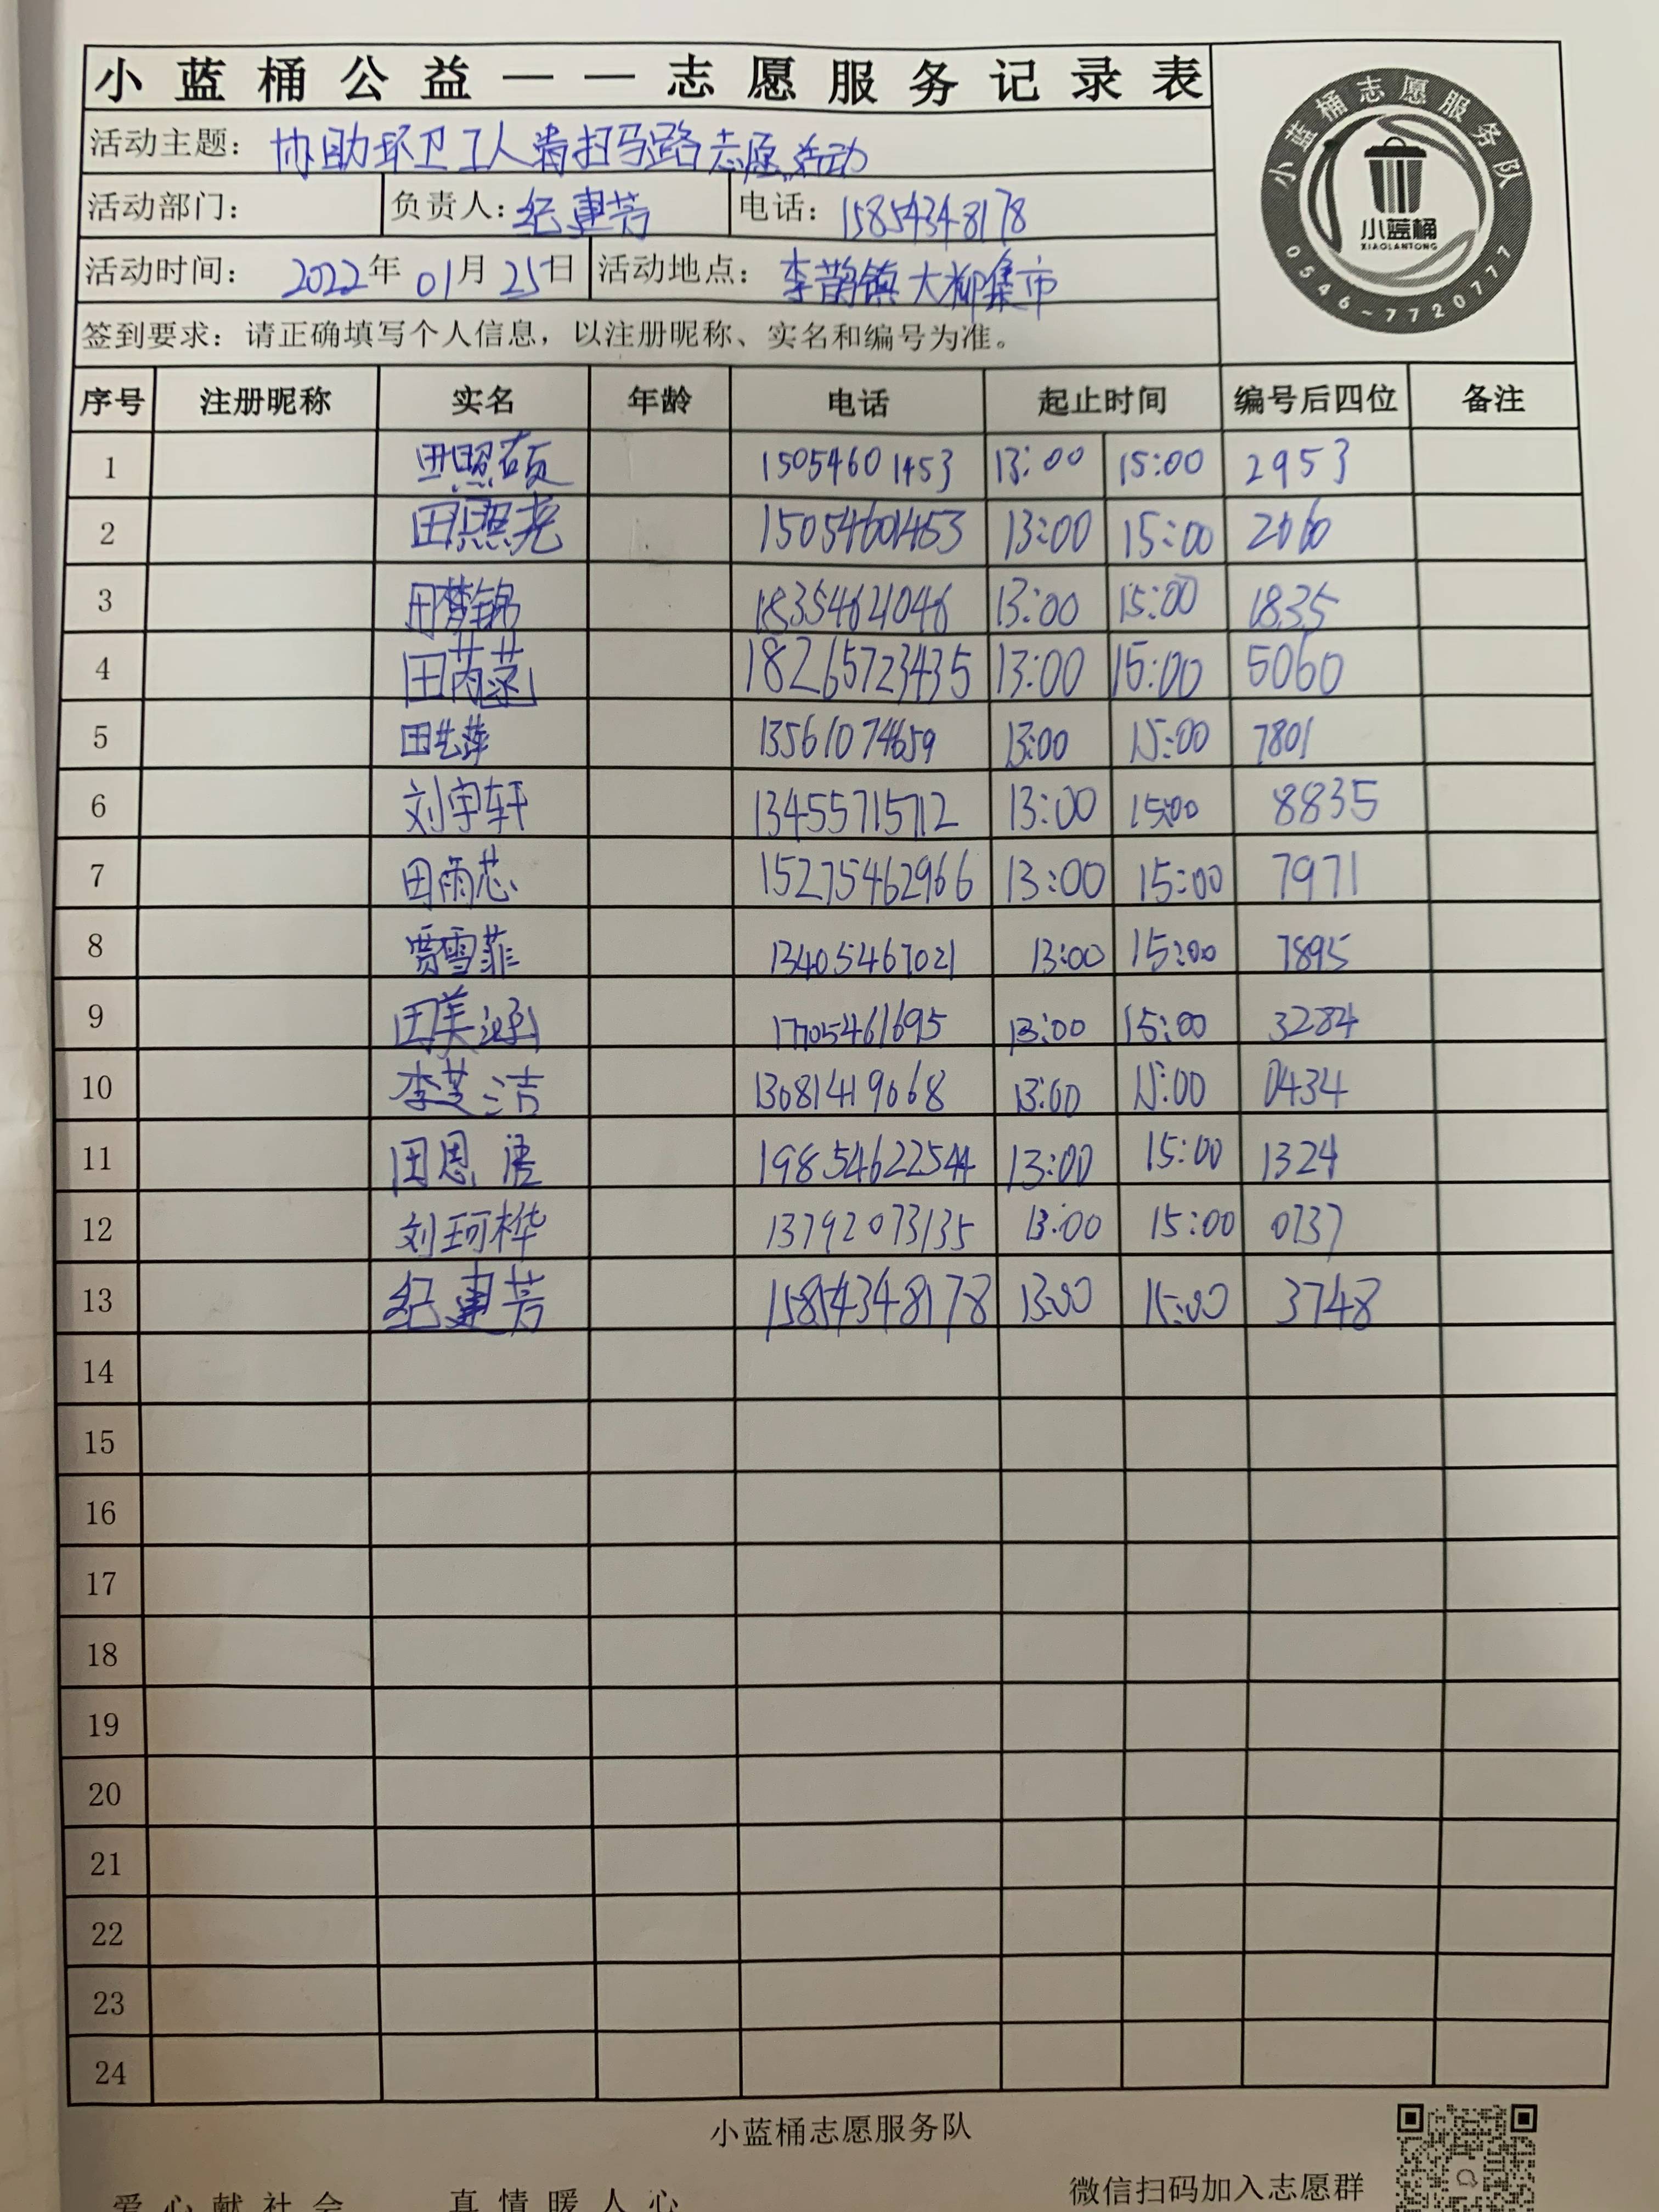 小蓝桶公益——志愿服务记录表
活动主题：协助环卫工人清扫马路志愿活动
活动部门： 负责人：纪建芳 电话：15854348178
活动时间：2022年01月25日 活动地点：李鹊镇大柳集市
签到要求：请正确填写个人信息，以注册昵称、实名和编号为准。
小蓝桶志愿服务队
小蓝桶
XIAOLANTONG
0546~7720777
序号 注册昵称 实名 年龄 电话 起止时间 编号后四位 备注
1 田照硕 15054601453 13:00 15:00 2953
2 田照尧 15054601453 13:00 15:00 2060
3 田梦锦 18354621046 13:00 15:00 1835
4 田芮菡 18265723435 13:00 15:00 5060
5 田艺萍 13561074659 13:00 15:00 7801
6 刘宇轩 13455715712 13:00 15:00 8835
7 田雨芯 15275462966 13:00 15:00 7971
8 贾雪菲 13405467021 13:00 15:00 7895
9 田美涵 17705461695 13:00 15:00 3284
10 李芝洁 13681419668 13:00 15:00 0434
11 田恩语 19854622544 13:00 15:00 1324
12 刘珂桦 13792073135 13:00 15:00 0737
13 纪建芳 15854348178 13:00 15:00 3748
14
15
16
17
18
19
20
21
22
23
24
小蓝桶志愿服务队
爱心献社会 真情暖人心 微信扫码加入志愿群